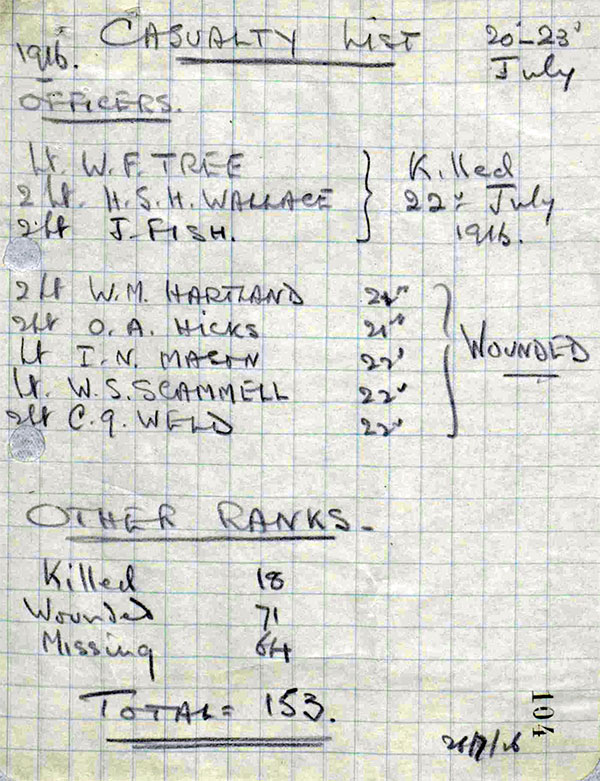 CASUALTY LIST 20'-23'
1916. July
OFFICERS.
Lt. W. F. TREE
2 Lt. H. S. H. WALLACE
2Lt J. FISH.
Killed
22nd July
1916.
2 Lt W. M. HARTLAND
2Lt O. A. HICKS 21st
Lt I. N. MASON 22'
Lt. W. S. SCAMMELL 22'
2Lt C. G. WELD 22'
WOUNDED
OTHER RANKS-
Killed 18
Wounded 71
Missing 64
TOTAL= 153.
104